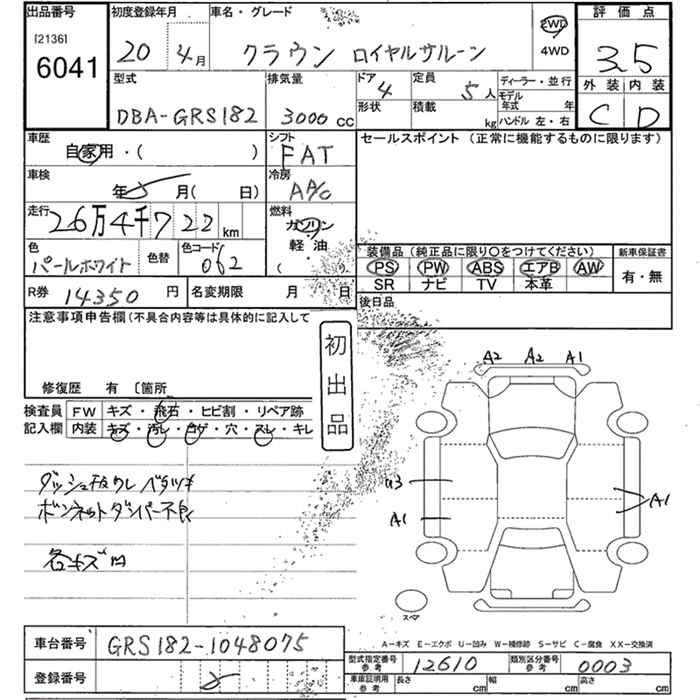 出品番号
[2136]
6041
初度登録年月
20 4月
車名・グレード
クラウン ロイヤルサルーン
2WD
4WD
評価点
3.5
外装 内装
C D
型式
DBA-GRS182
排気量
3000 cc
ドア
4
形状
定員
5人
積載
kg
ディーラー・並行
モデル年式 年
ハンドル 左・右
車歴
自家用・( )
シフト
FAT
車検
年 月( 日)
冷房
AAC
走行
26万4千722km
燃料
ガソリン
軽油
( )
色
パールホワイト
色替
色コード
062
R券 14350 円
名変期限 月 日
セールスポイント(正常に機能するものに限ります)
装備品(純正品に限り○をつけてください)
PS PW ABS エアB AW
SR ナビ TV 本革
新車保証書
有・無
後日品
注意事項申告欄(不具合内容等は具体的に記入して
修復歴 有 〔箇所
初出品
検査員記入欄
FW キズ・飛石・ヒビ割・リペア跡
内装 キズ・汚レ・コゲ・穴・スレ・キレ
ボンネットダンパー不良
各キズ凹
A2 A2 A1
U3
A1
A1
スペア
A-キズ E-エクボ U-凹み W-補修跡 S-サビ C-腐食 XX-交換済
車台番号 GRS182-1048075
登録番号
型式指定番号
参考
12610
類別区分番号
参考
0003
車庫証明用
参考
長さ cm
幅 cm
高さ cm